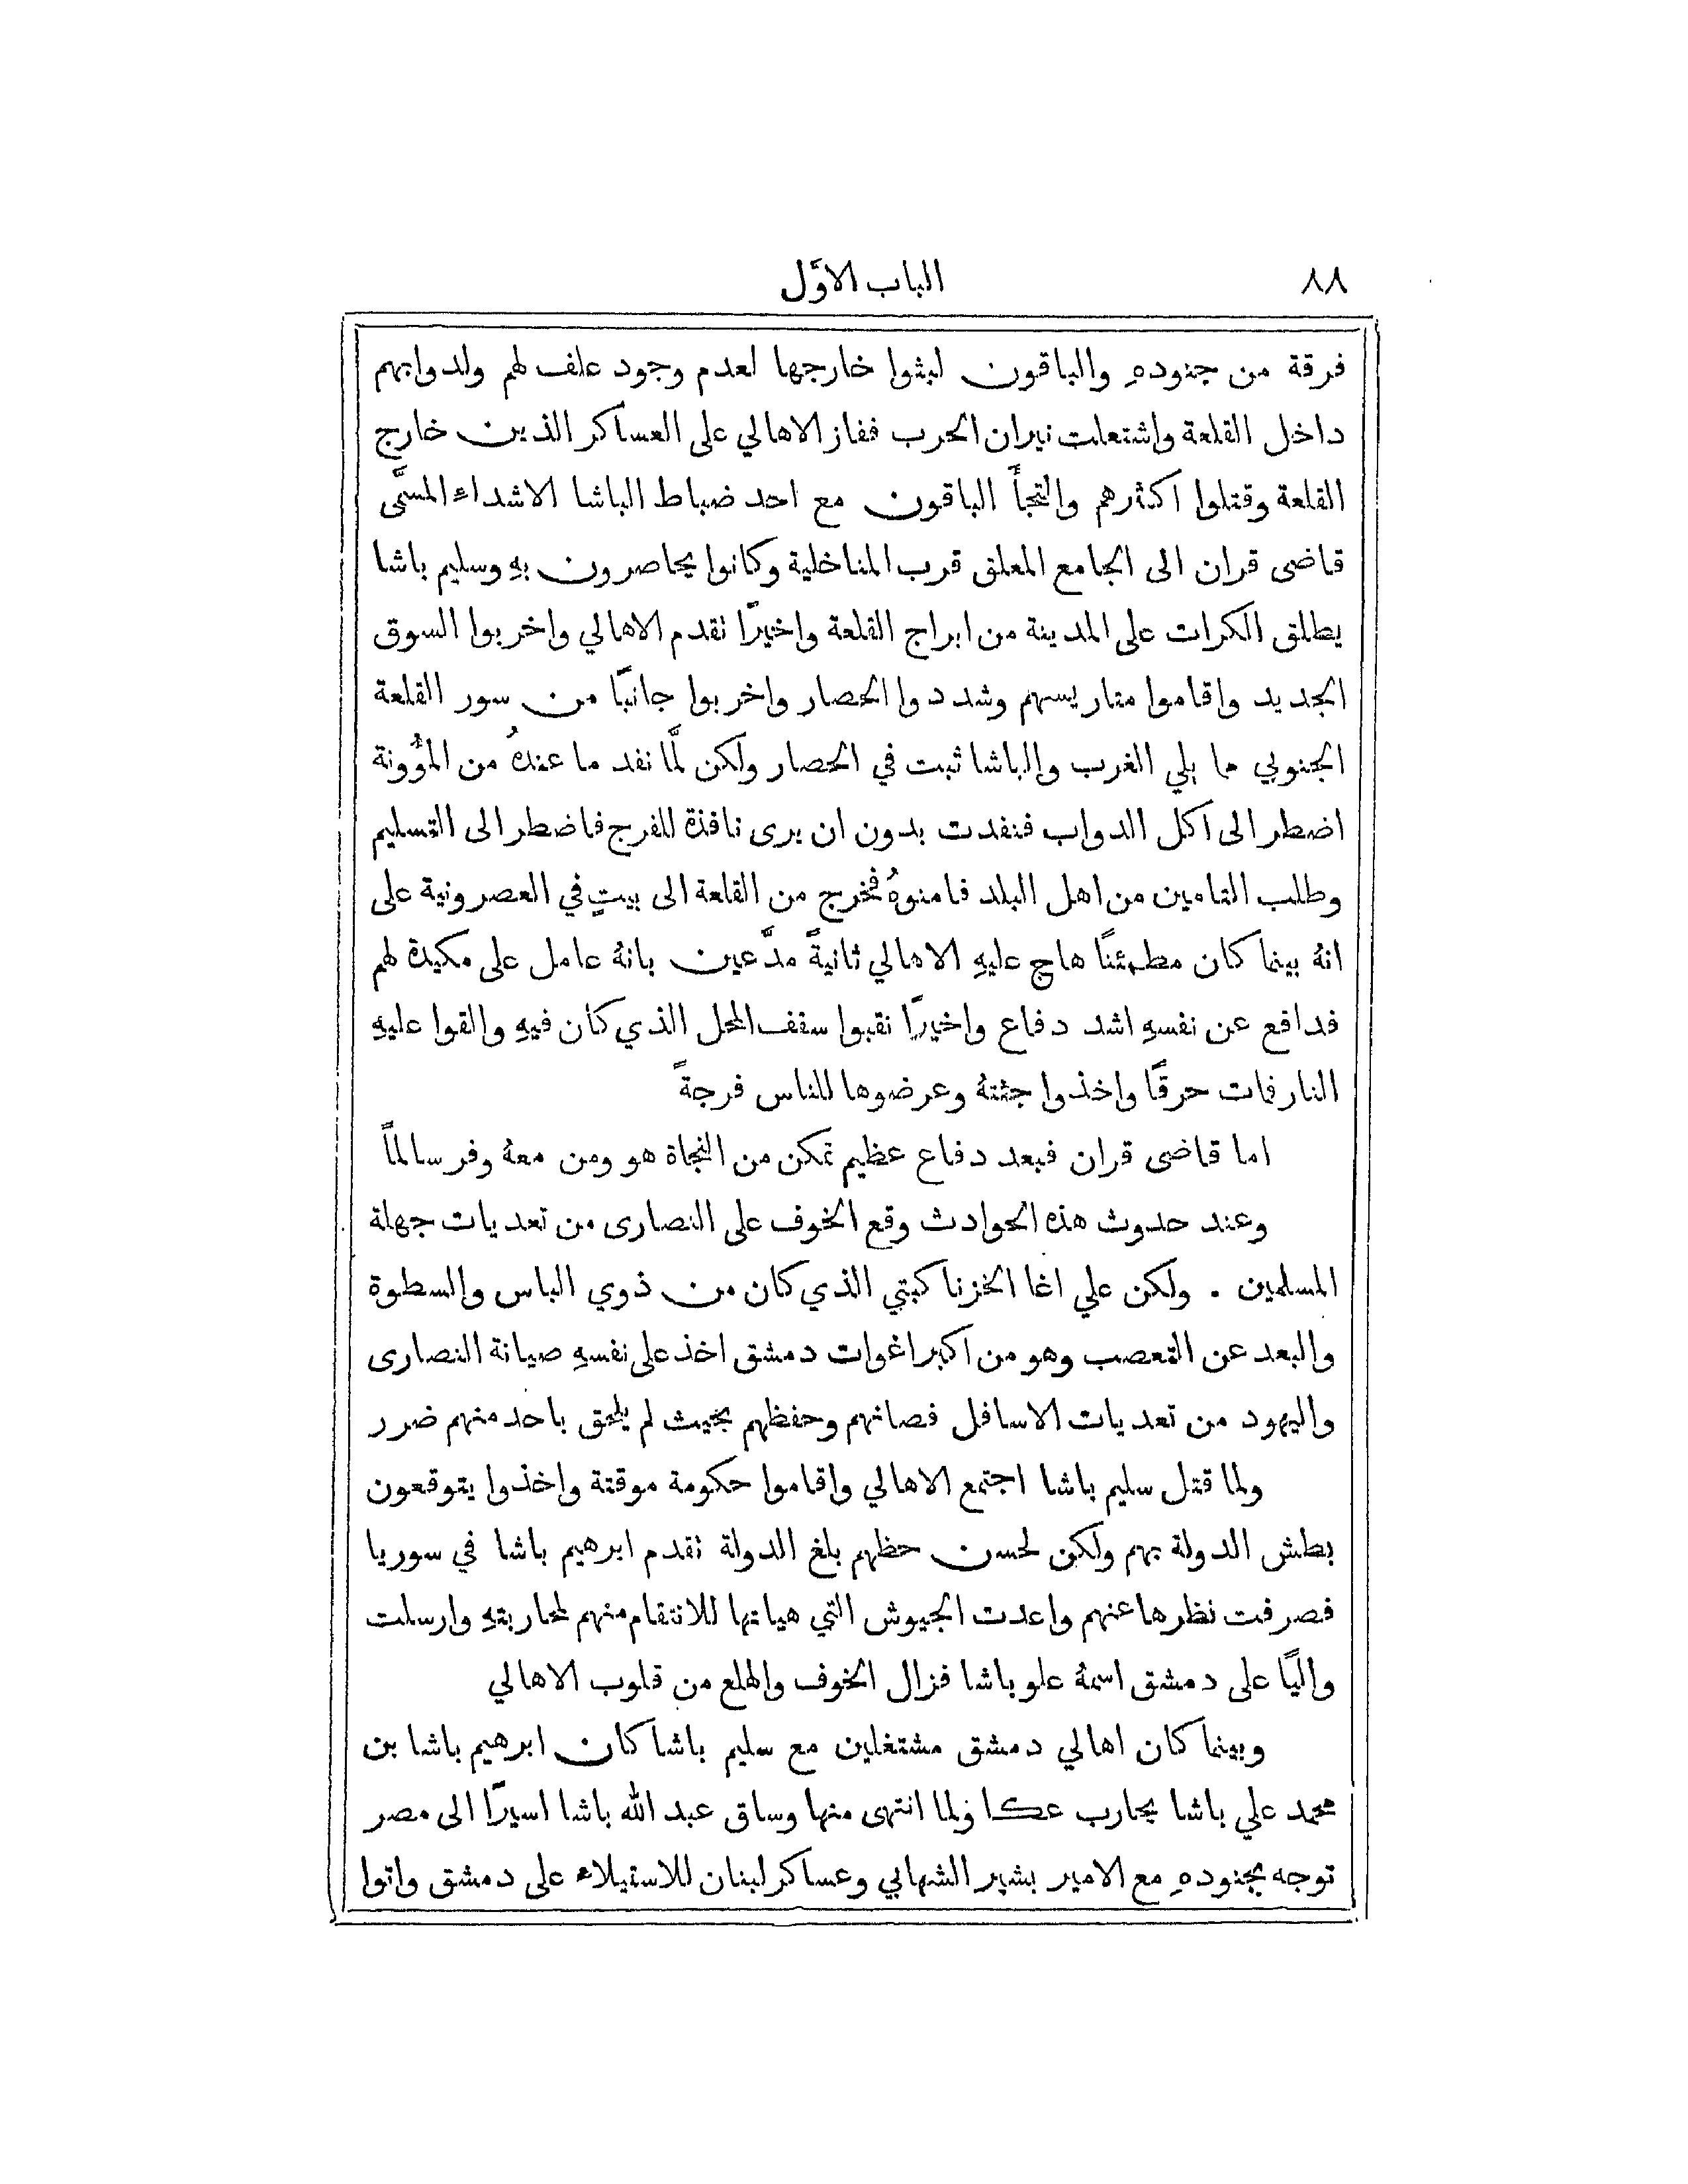 ٨٨
الباب الاوَّل
فرقة من جنودهِ والباقون لبثوا خارجها لعدم وجود علف لهم ولدوابهم
داخل القلعة واشتعلت نيران الحرب ففاز الاهالي على العساكر الذين خارج
القلعة وقتلوا اكثرهم والتجأَ الباقون مع احد ضباط الباشا الاشداء المسمَّى
قاضى قران الى الجامع المعلق قرب المناخلية وكانوا يحاصرون بهِ وسليم باشا
يطلق الكرات على المدينة من ابراج القلعة واخيرًا تقدم الاهالي واخربوا السوق
الجديد واقاموا متاريسهم وشددوا الحصار واخربوا جانبًا من سور القلعة
الجنوبي مما يلي الغرب والباشا ثبت في الحصار ولكن لمَّا نفد ما عندهُ من المؤُونة
اضطر الى اكل الدواب فنفدت بدون ان يرى نافذة للفرج فاضطر الى التسليم
وطلب التامين من اهل البلد فامنوهُ فخرج من القلعة الى بيتٍ في العصرونية على
انهُ بينما كان مطمئنًا هاج عليهِ الاهالي ثانيةً مدَّعين بانهُ عامل على مكيدة لهم
فدافع عن نفسهِ اشد دفاع واخيرًا نقبوا سقف المحل الذي كان فيهِ والقوا عليهِ
النار فمات حرقًا واخذوا جثتهُ وعرضوها للناس فرجةً
اما قاضى قران فبعد دفاع عظيم تمكن من النجاة هو ومن معهُ وفر سالمًا
وعند حدوث هذه الحوادث وقع الخوف على النصارى من تعديات جهلة
المسلمين . ولكن علي اغا الخزنا كبتي الذي كان من ذوي الباس والسطوة
والبعد عن التعصب وهو من اكبر اغوات دمشق اخذ على نفسهِ صيانة النصارى
واليهود من تعديات الاسافل فصانهم وحفظهم بحيث لم يلحق باحد منهم ضرر
ولما قتل سليم باشا اجتمع الاهالي واقاموا حكومة موقتة واخذوا يتوقعون
بطش الدولة بهم ولكن لحسن حظهم بلغ الدولة تقدم ابرهيم باشا في سوريا
فصرفت نظرها عنهم واعدت الجيوش التي هياتها للانتقام منهم لمحاربتهِ وارسلت
واليًا على دمشق اسمهُ علو باشا فزال الخوف والهلع من قلوب الاهالي
وبينما كان اهالي دمشق مشتغلين مع سليم باشا كان ابرهيم باشا بن
محمد علي باشا يحارب عكا ولما انتهى منها وساق عبد الله باشا اسيرًا الى مصر
توجه بجنودهِ مع الامير بشير الشهابي وعساكر لبنان للاستيلاء على دمشق واتوا